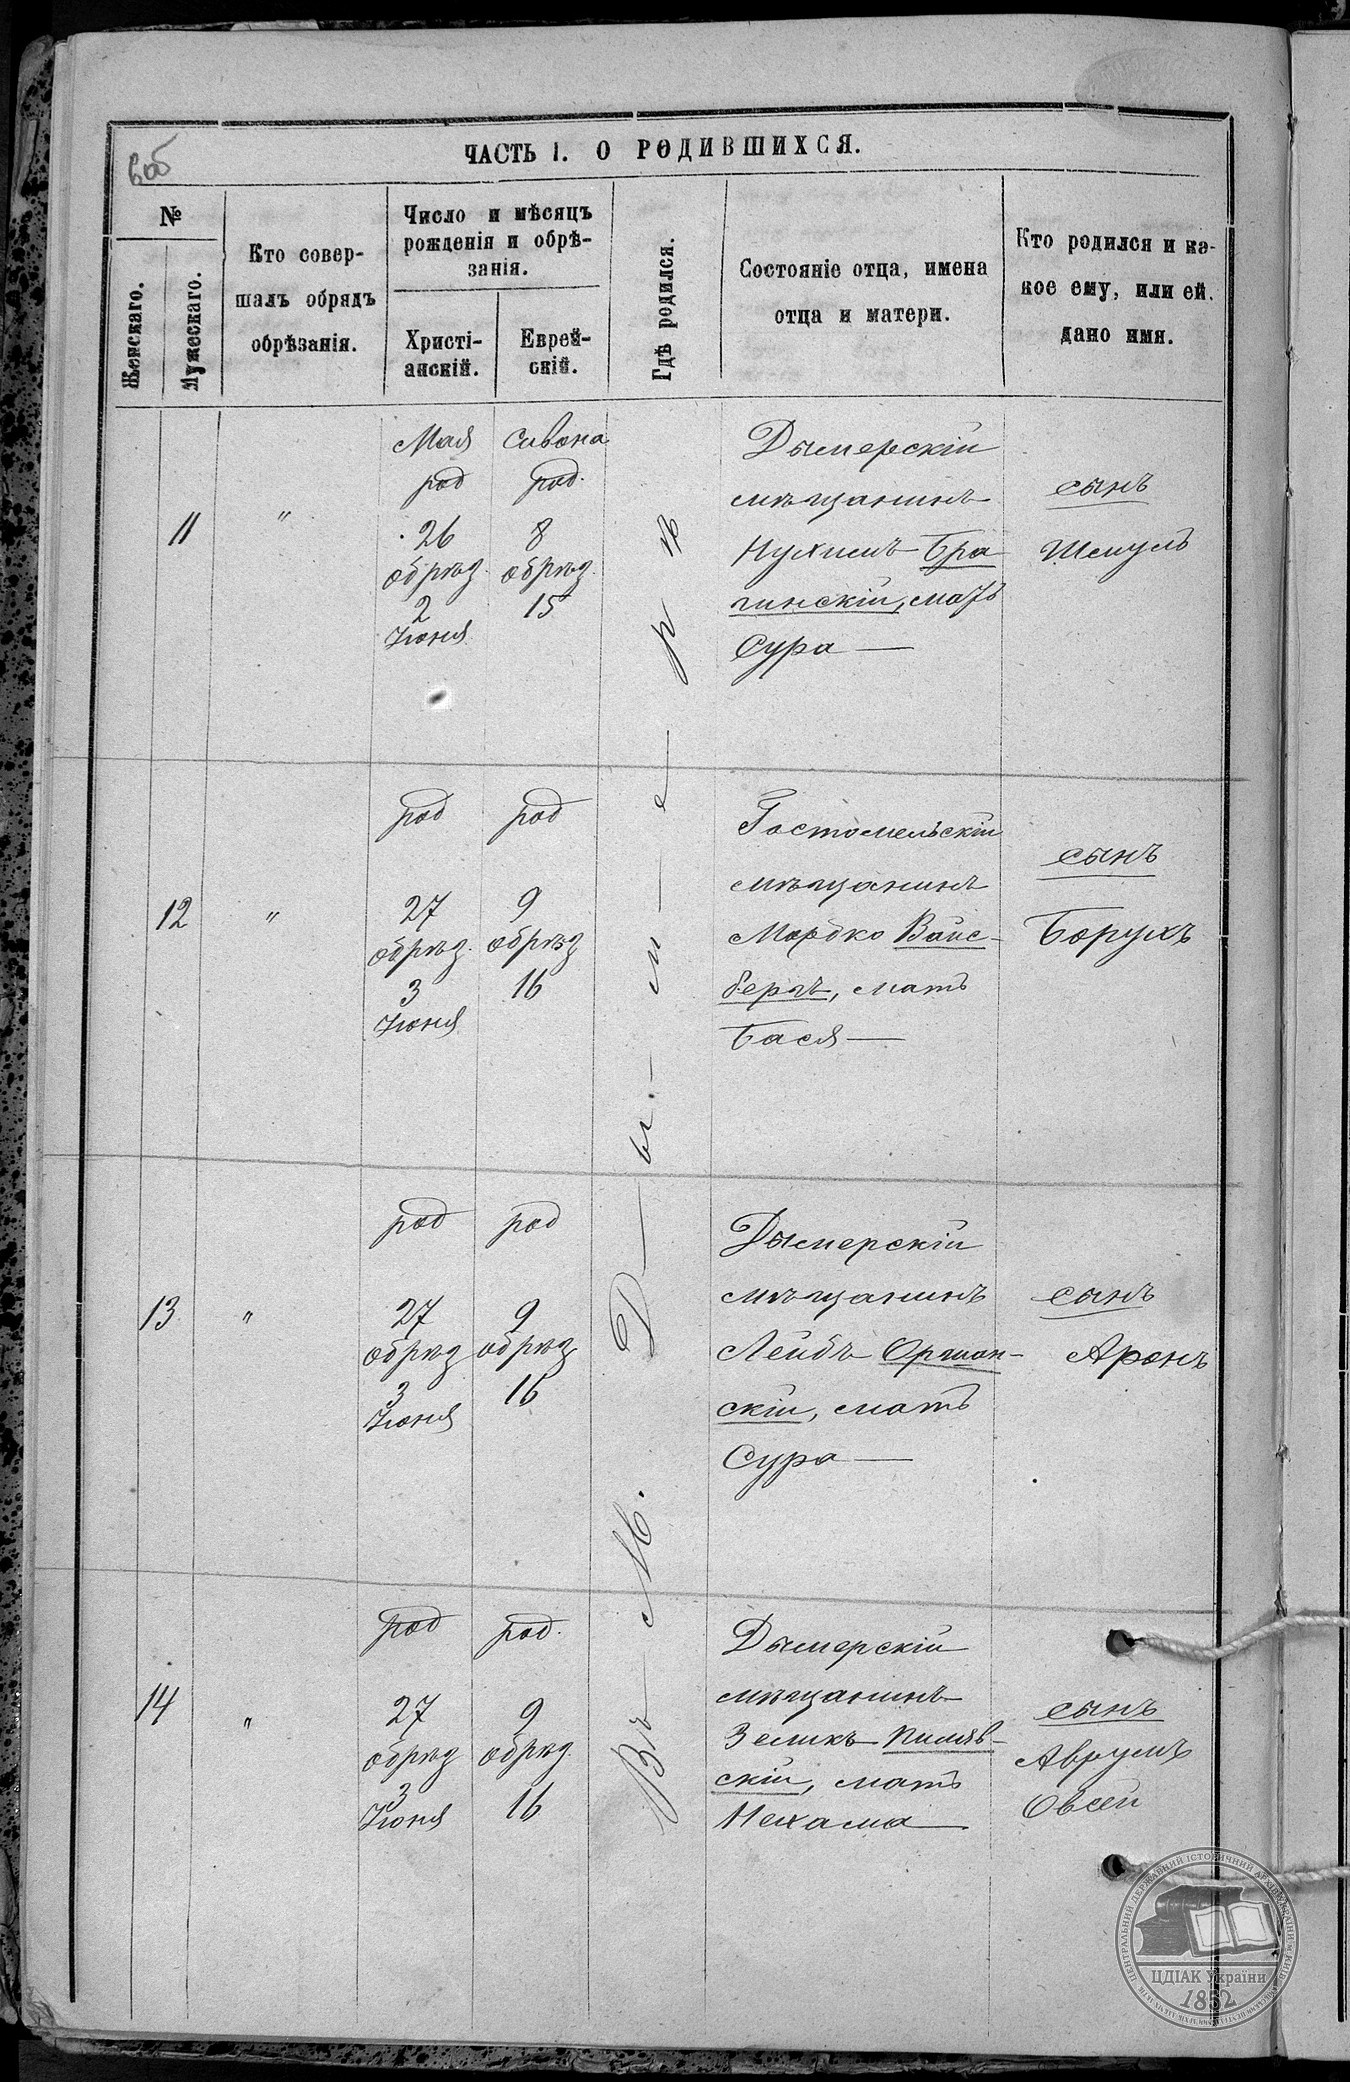 ЧАСТЬ I. О РОДИВШИХСЯ.
№
Женскаго.
Мужескаго.
Кто совер-
шалъ обрядъ
обрѣзанія.
Число и мѣсяцъ
рожденія и обрѣ-
занія.
Христі-
анскій.
Еврей-
скій.
Гдѣ родился.
Состояніе отца, имена
отца и матери.
Кто родился и ка-
кое ему, или ей,
дано имя.
11
"
Мая
род
26
обрѣз.
2
Июня
Сивона
род.
8
обрѣз.
15
Дымерскій
мѣщанинъ
Нухимъ Бра
гинскій, мать
Сура —
сынъ
Шмуль
12
"
род
27
обрѣз.
3
Июня
род
9
обрѣз
16
Гостомельскій
мѣщанинъ
Мордко Вайс-
бергъ, мать
Бася —
сынъ
Борухъ
13
"
род
27
обрѣз
3
Июня
род
9
обрѣз
16
Дымерскій
мѣщанинъ
Лейбъ Оршан-
скій, мать
Сура —
сынъ
Аронъ
14
"
род
27
обрѣз
3
Июня
род.
9
обрѣз.
16
Дымерскій
мѣщанинъ
Зеликъ Пиляв-
скій, мать
Нехама —
сынъ
Аврумъ
Овсей
Въ — М. Д — ы — м — е — р ѣ
ЦЕНТРАЛЬНИЙ ДЕРЖАВНИЙ ІСТОРИЧНИЙ АРХІВ УКРАЇНИ
ЦДІАК України
1852